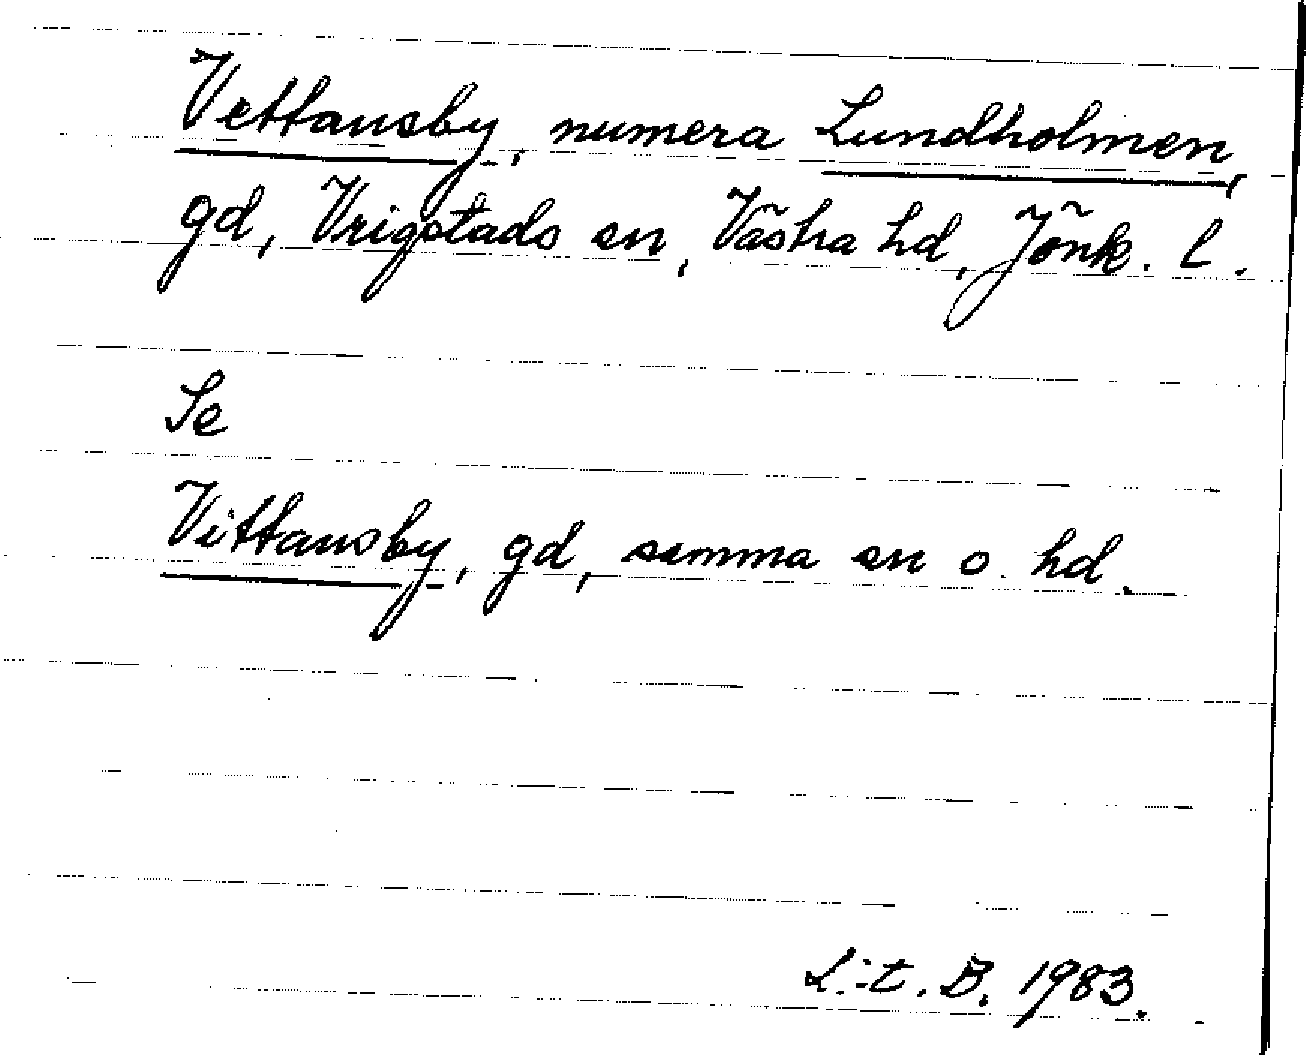 Vettansby, numera Lundholmen,
gd, Vrigstads sn, Västra hd, Jönk. l.
Se
Vittansby, gd, samma sn o. hd.
L:t. B. 1983.